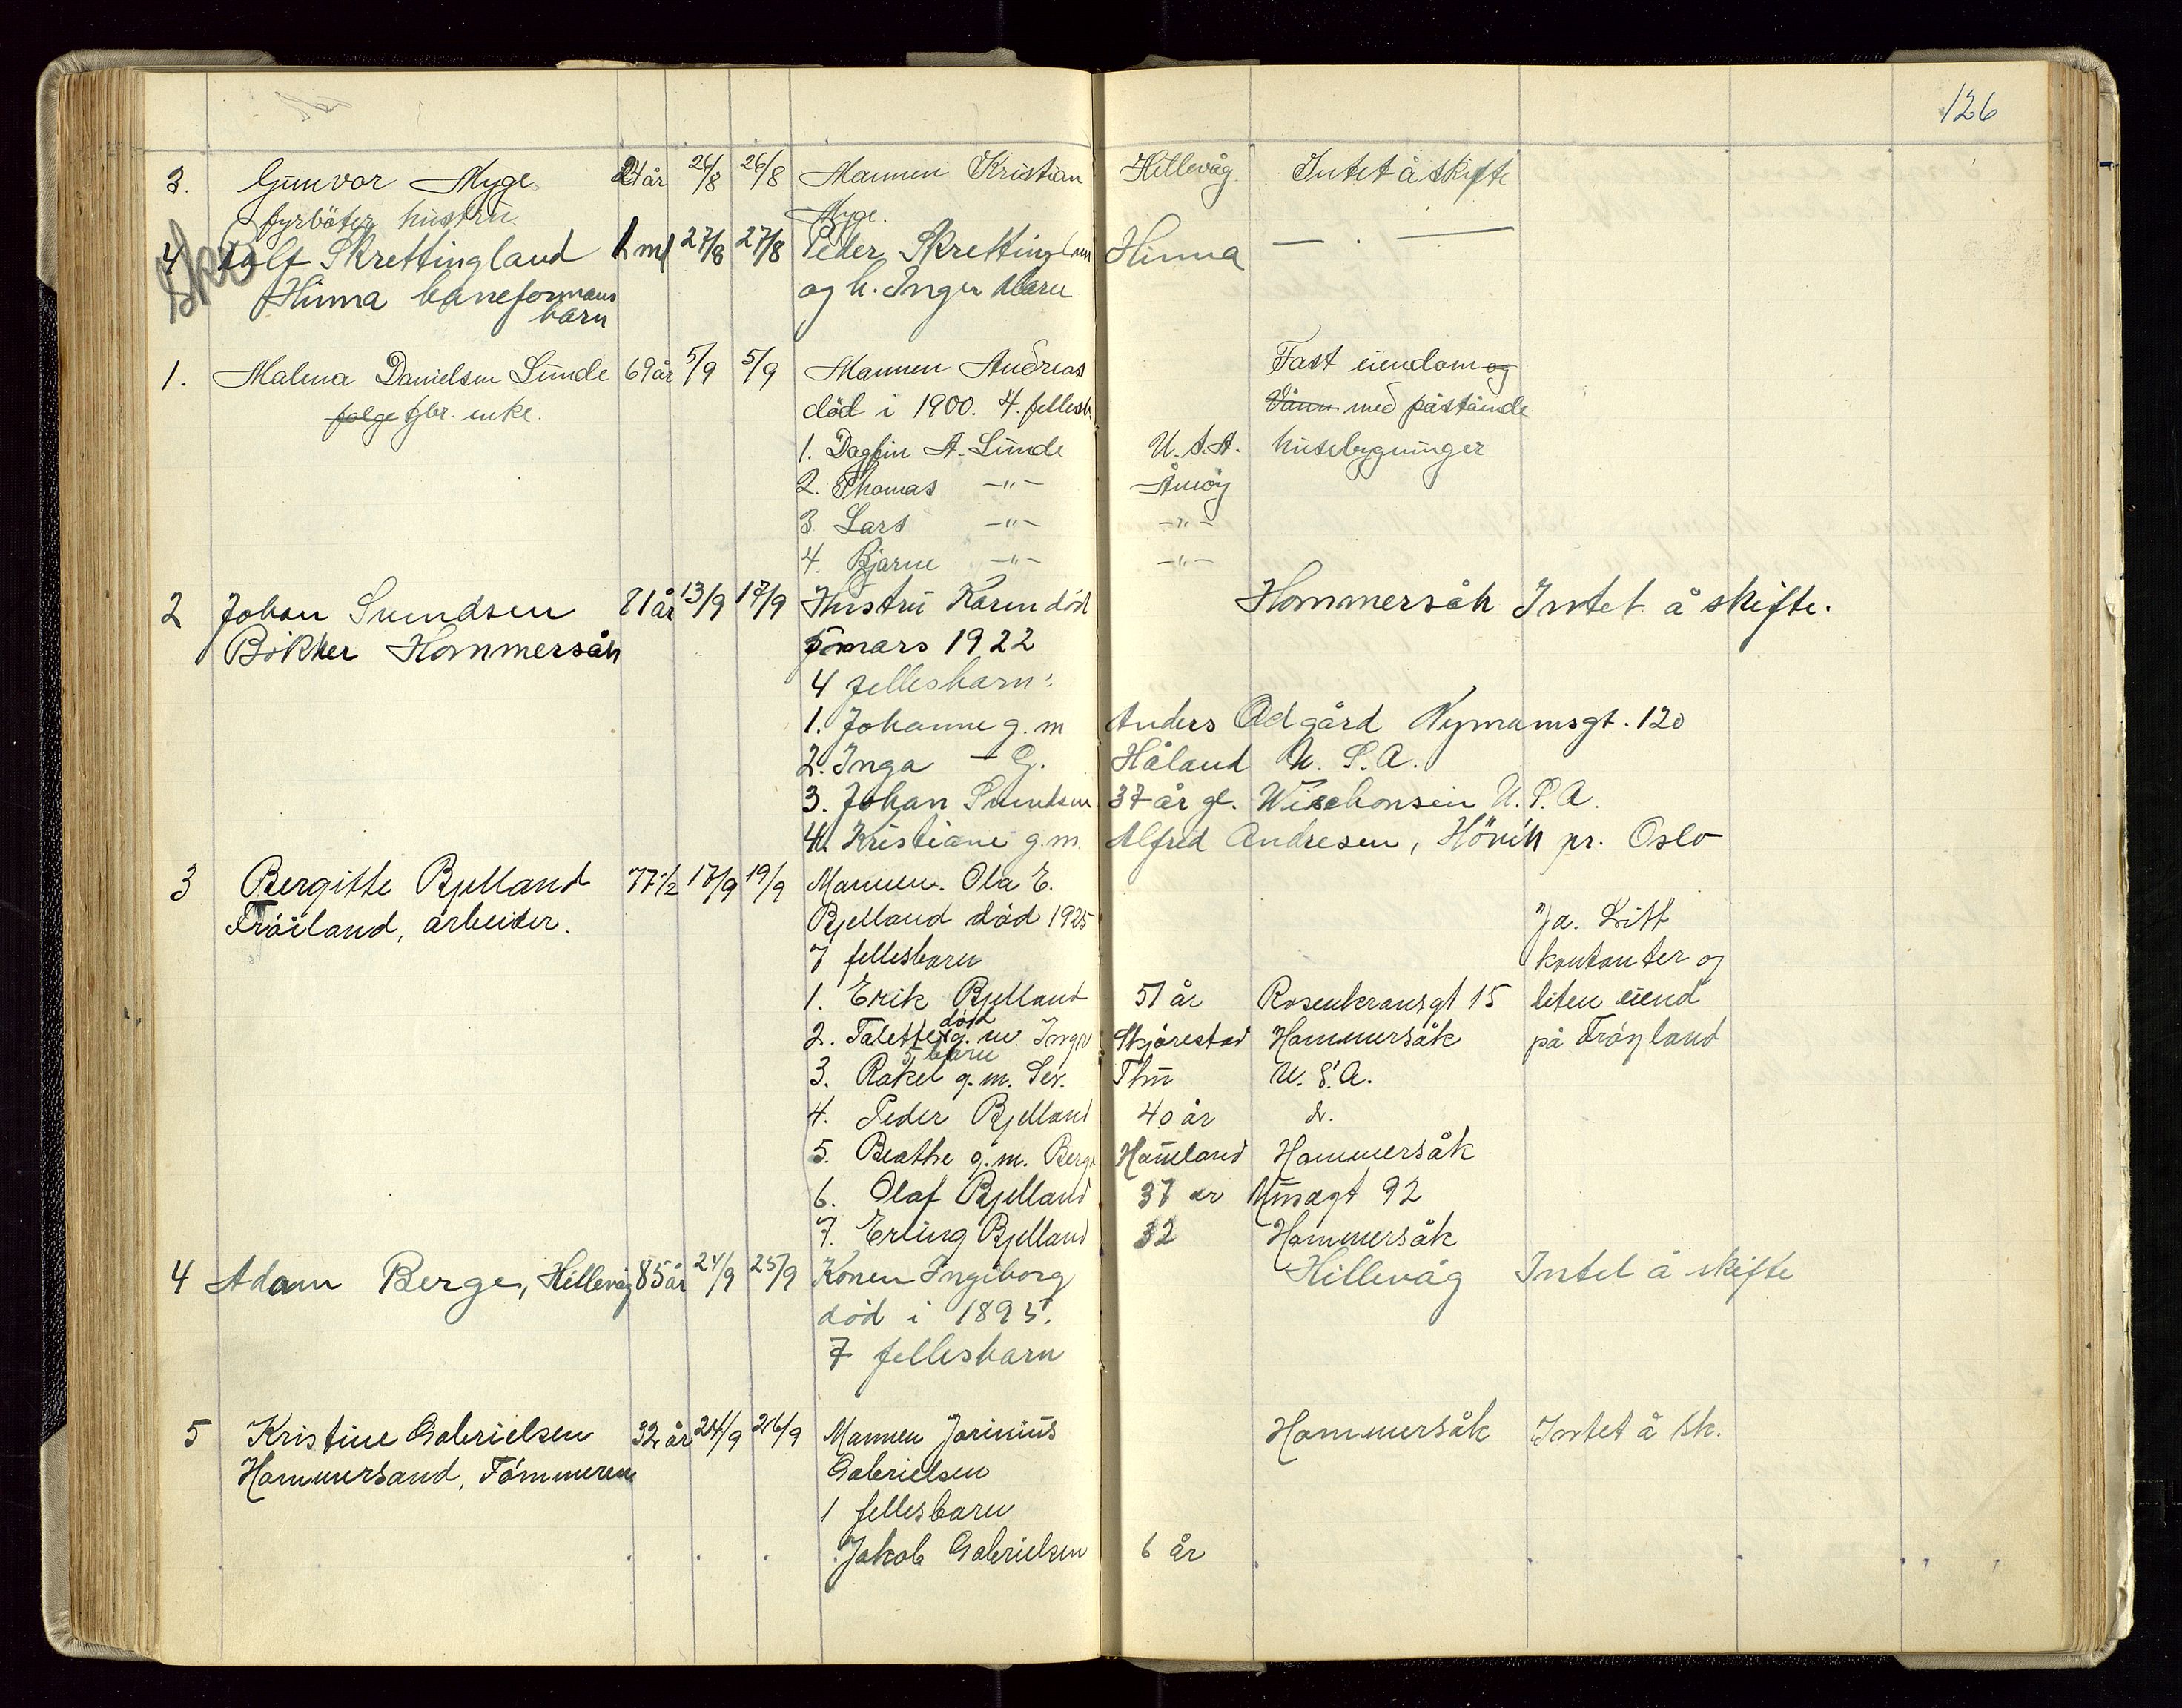 126
3. Gunvor Myge 24 år 26/8 26/8 Mannen Kristian Hillevåg Intet å skifte
fyrböter hustru Myge.
4 Rolf Skrettingland 1 md 27/8 27/8 Peder Skrettingland Hinna — . —
Hinna baneformans og h. Inger Maru
barn
1. Malena Danielsen Lunde 69 år 5/9 5/9 Mannen Andreas Fast eiendom og
gbr. enke. död i 1900. 4. fellesb. med påstående
1. Dagfin A. Lunde U.S.A. husebygninger
2. Thomas -"- Åmöy
3 Lars -"- -"-
4. Bjarne -"- -"-
2 Johan Svendsen 81 år 13/9 17/9 Hustru Karen död Hommersåk Intet å skifte.
Bökker Hommersåk mars 1922
4 fellesbarn:
1. Johanne g. m Anders Odgård Nymannsgt. 120
2. Inga - G. Håland U. S. A.
3. Johan Svendsen 37 år gl. Wischonsin U.S.A.
4. Kristiane g.m. Alfred Andresen, Hövik pr. Oslo
3 Bergitte Bjelland 77 1/2 17/9 19/9 Mannen. Ola E.
Fröiland, arbeider. Bjelland död 1925 Ja. Litt
7 fellesbarn kontanter og
1. Erik Bjelland 51 år Rosenkransgt 15 liten eiend
död
2. Talette g. m. Ingv Skjörestad Hommersåk på Fröyland
5 barn
3. Rakel g. m. Sev. Thu U. S. A.
4. Peder Bjelland 40 år
5. Beathe g. m. Berge Hauland Hommersåk
6. Olaf Bjelland 37 år 92
7. Erling Bjelland 32 Hommersåk
4 Adam Berge, Hillevåg 85 år 24/9 25/9 Konen Ingiborg Hillevåg Intet å skifte
död i 1895.
7 fellesbarn
5 Kristine Gabrielsen 32 år 24/9 26/9 Mannen Jorinius Hommersåk Intet å sk.
Hommersand, Tömmerm Gabrielsen
1 fellesbarn
Jakob Gabrielsen 6 år